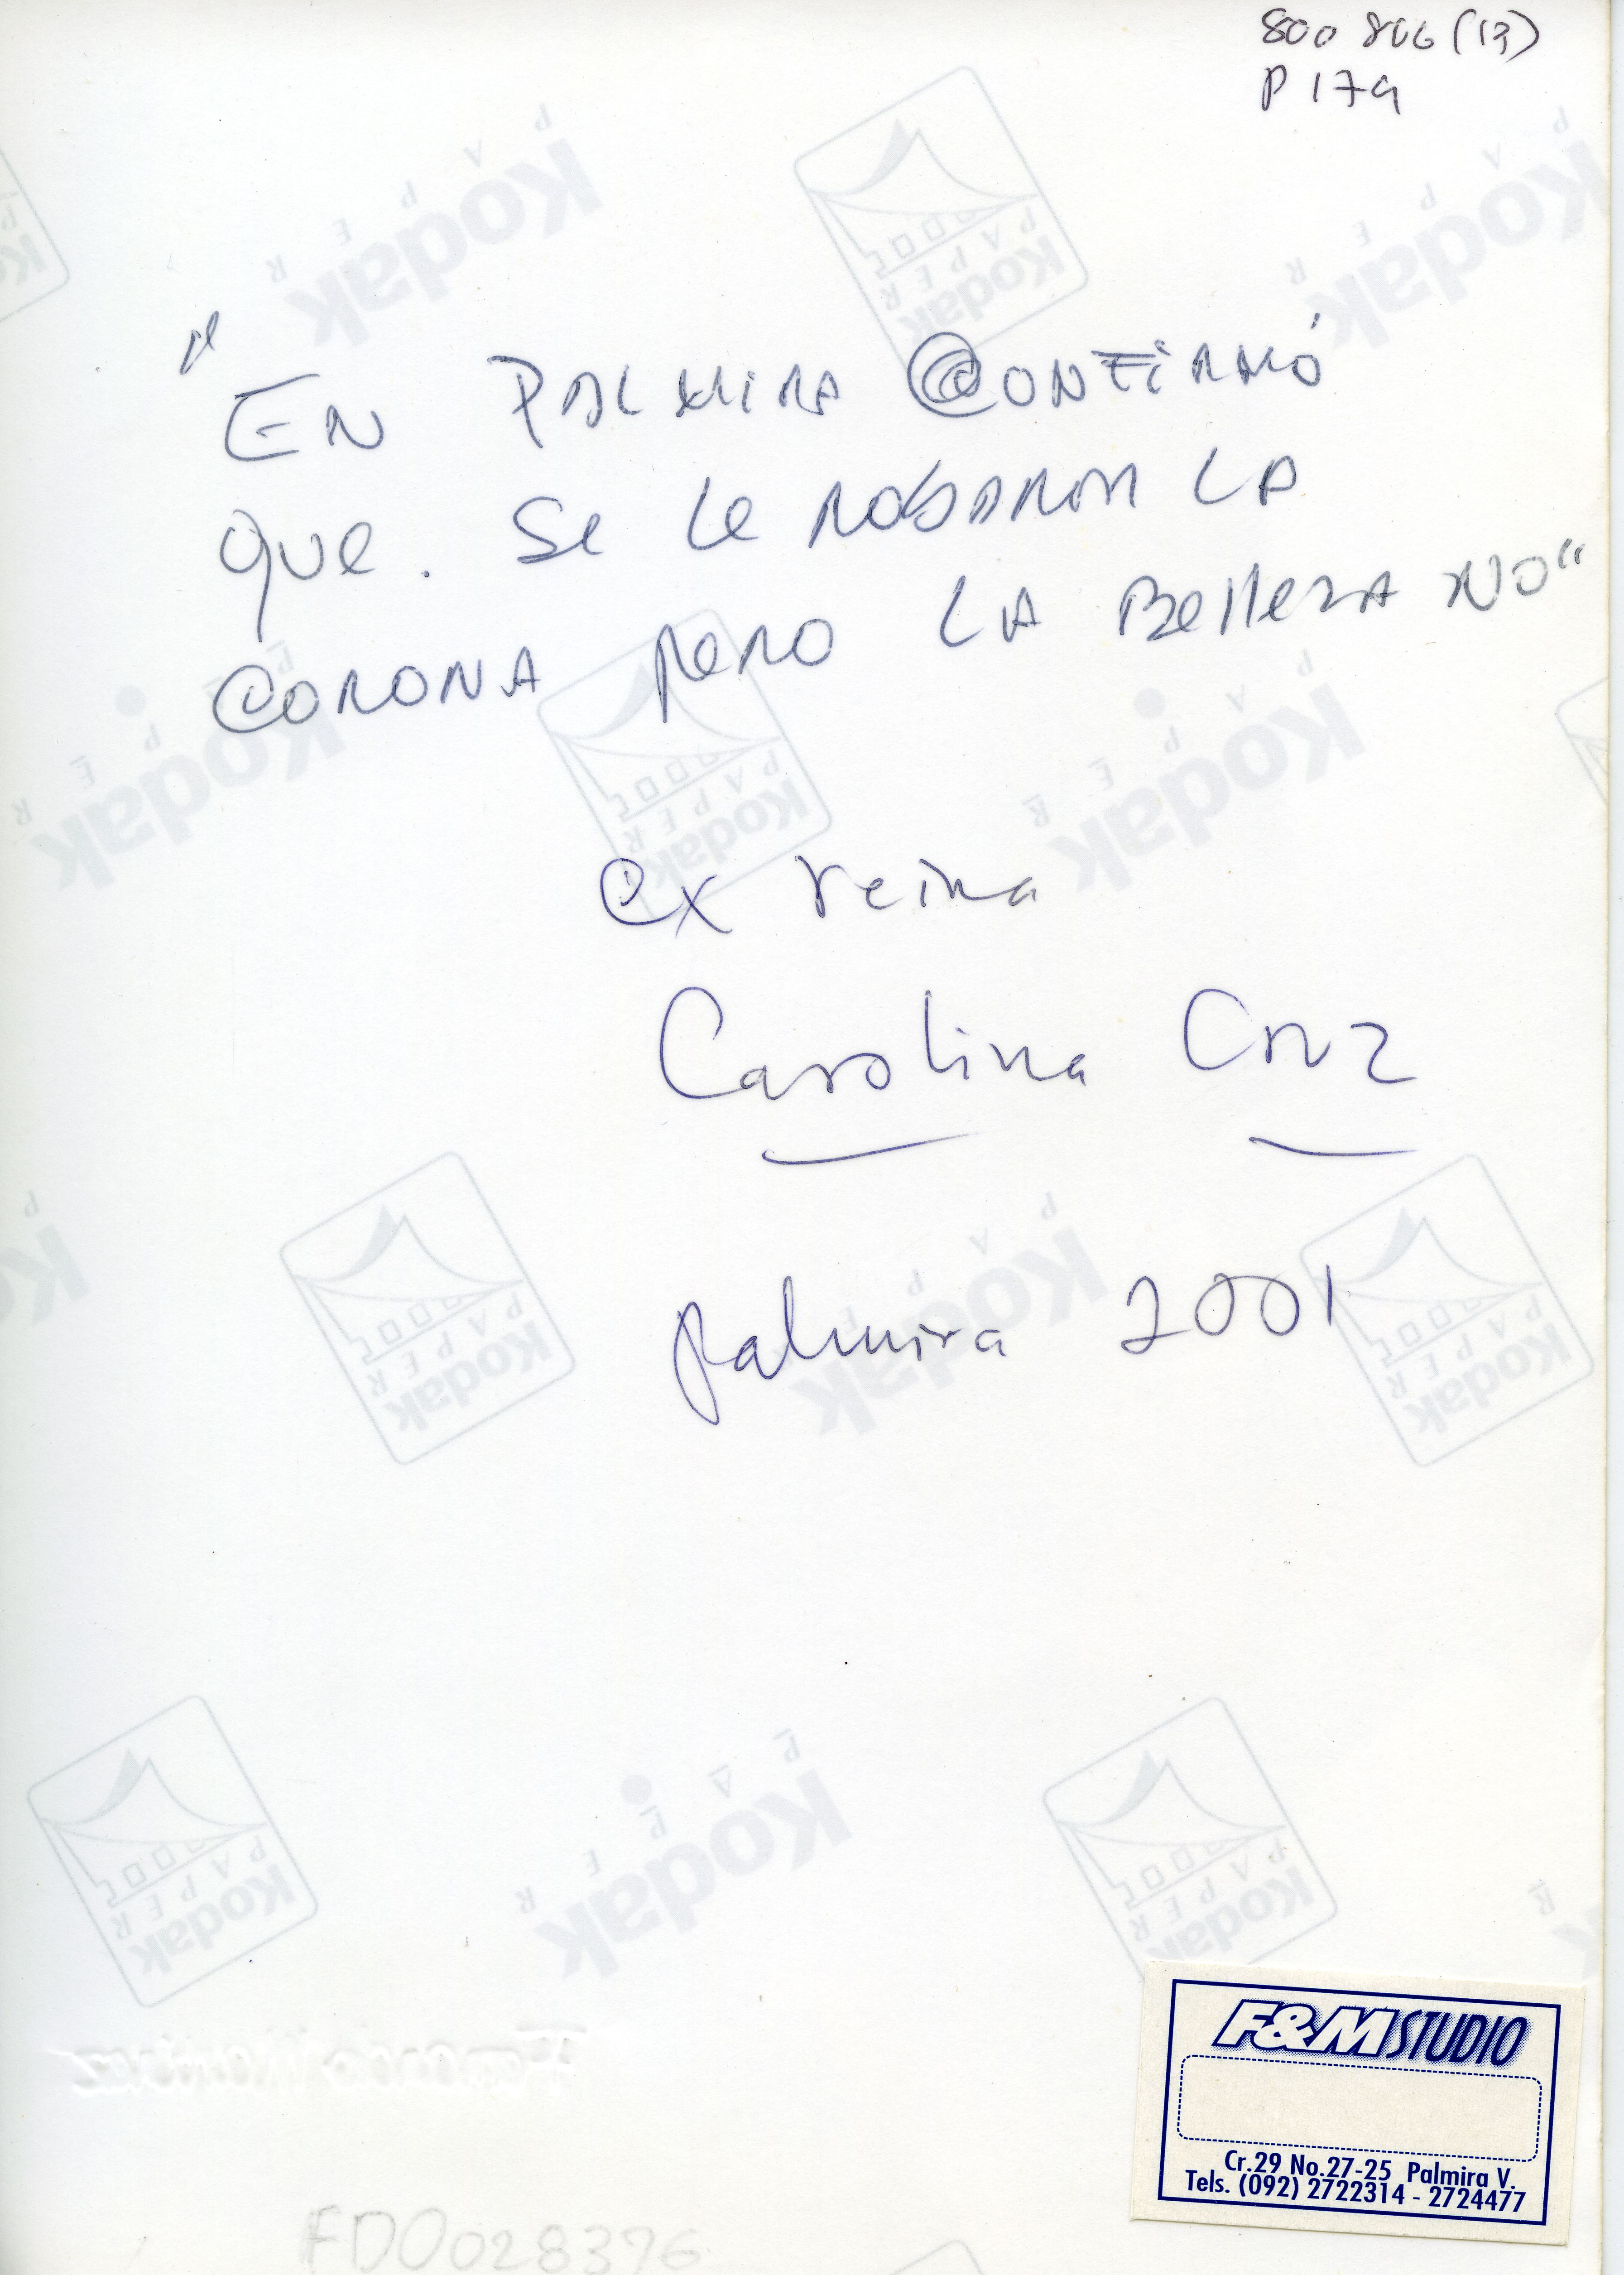 800 866 (13)
P 179
"EN PALMIRA CONFIRMÓ
que. Se le ROBARON LA
CORONA PERO LA Belleza NO"
ex reina
Carolina Cruz
palmira 2001
F&M STUDIO
Cr.29 No.27-25 Palmira V.
Tels. (092) 2722314 - 2724477
FD0028376
Kodak
PAPER